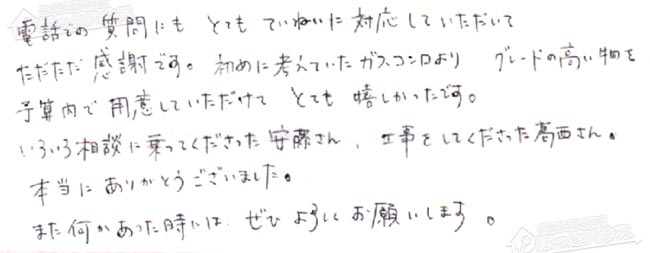 電話での質問にも とても ていねいに 対応していただいて
ただただ 感謝です。初めに考えていたガスコンロより グレードの高い物を
予算内で 用意していただけて とても 嬉しかったです。
いろいろ相談に乗ってくださった安藤さん、工事をしてくださった葛西さん。
本当に ありがとうございました。
また何かあった時には、ぜひ よろしく お願いします。